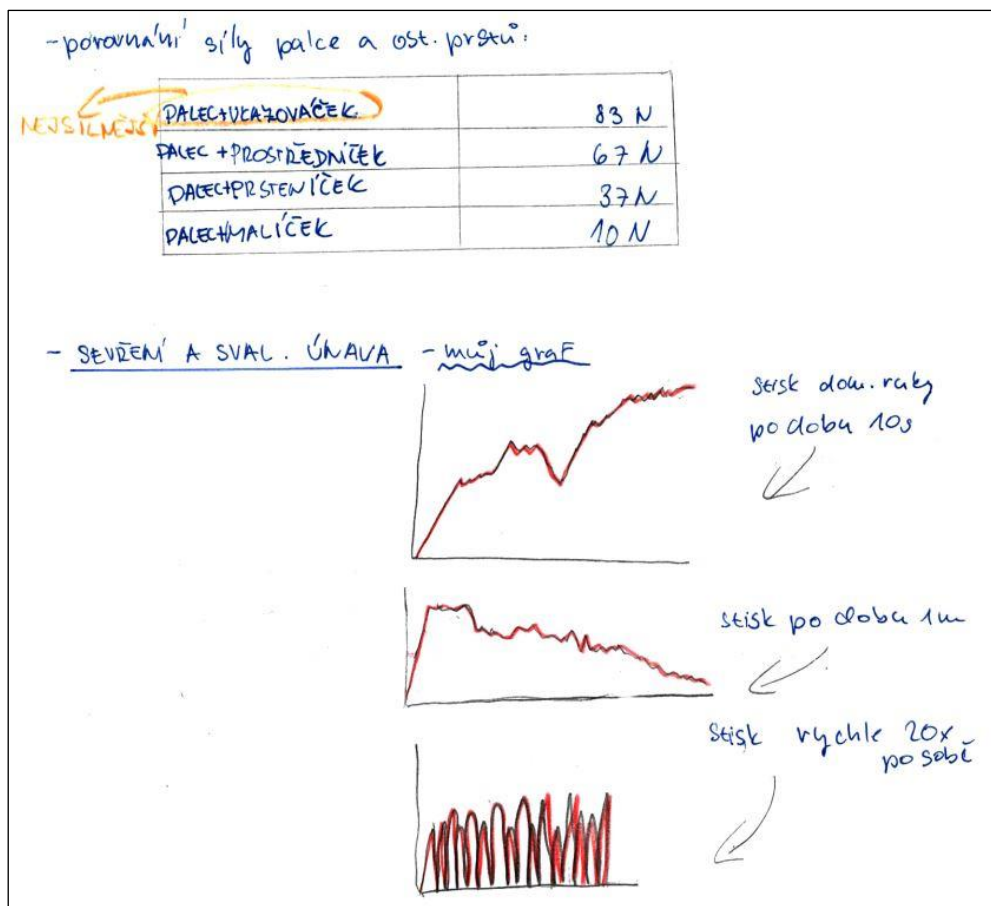 -porovnání síly palce a ost. prstů:
PALEC+UKAZOVÁČEK 83 N
NEJSILNĚJŠÍ
PALEC +PROSTŘEDNÍČEK 67 N
PALEC+PRSTENÍČEK 37 N
PALEC+MALÍČEK 10 N
- SEVŘENÍ A SVAL. ÚNAVA - můj graf
stisk dom. ruky
po dobu 10s
stisk po dobu 1m
stisk rychle 20x
po sobě